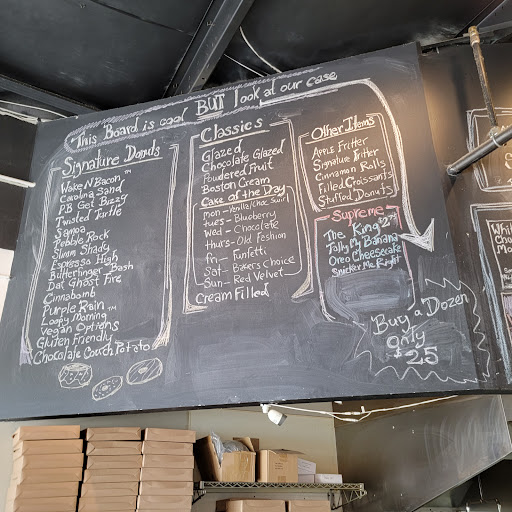 This Board is cool BUT look at our case
Signature Donuts
Wake N Bacon™
Carolina Sand
P.B Get Bizzy
Twisted Turtle
Samoa
Pebble Rock
Slimm Shady
Espresso High
Butterfinger Bash
Dat Ghost Fire
Cinnabomb
Purple Rain™
Loopy Morning
Vegan Options
Gluten Friendly
Chocolate Couch Potato
Classics
Glazed
Chocolate Glazed
Powdered Fruit
Boston Cream
Cake of the Day
Mon - Vanilla/Choc Swirl
Tues - Blueberry
Wed - Chocolate
Thurs - Old Fashion
Fri - Funfetti
Sat - Bakers Choice
Sun - Red Velvet
Cream Filled
Other Items
Apple Fritter
Signature Fritter
Cinnamon Rolls
Filled Croissants
Stuffed Donuts
Supreme
The King
Tally My Banana
Oreo Cheesecake
Snicker Me Right
Buy a Dozen
only
$25